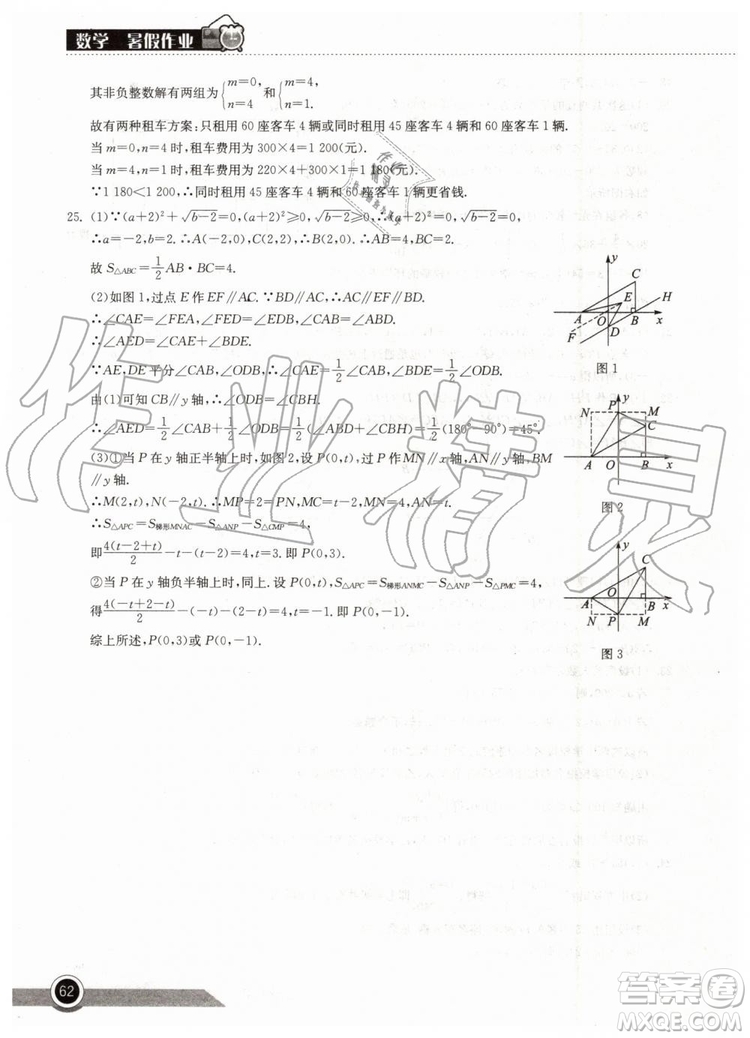 数学 暑假作业
其非负整数解有两组为{m=0, n=4 和{m=4, n=1.
故有两种租车方案:只租用 60 座客车 4 辆或同时租用 45 座客车 4 辆和 60 座客车 1 辆.
当 m=0,n=4 时,租车费用为 300×4=1 200(元).
当 m=4,n=1 时,租车费用为 220×4+300×1=1 180(元).
∵1 180<1 200,∴同时租用 45 座客车 4 辆和 60 座客车 1 辆更省钱.
25. (1)∵(a+2)²+√(b-2)=0,(a+2)²≥0,√(b-2)≥0,∴(a+2)²=0,√(b-2)=0.
∴a=-2,b=2.∴A(-2,0),C(2,2),∴B(2,0).∴AB=4,BC=2.
故 S△ABC=1/2 AB·BC=4.
(2)如图 1,过点 E 作 EF∥AC.∵BD∥AC,∴AC∥EF∥BD.
∴∠CAE=∠FEA,∠FED=∠EDB,∠CAB=∠ABD.
∴∠AED=∠CAE+∠EDB.
∵AE,DE 平分∠CAB,∠ODB,∴∠CAE=1/2∠CAB,∠BDE=1/2∠ODB.
由(1)可知 CB∥y 轴,∴∠ODB=∠CBH.
∴∠AED=1/2∠CAB+1/2∠ODB=1/2(∠ABD+∠CBH)=1/2(180°-90°)=45°.
(3)①当 P 在 y 轴正半轴上时,如图 2,设 P(0,t),过 P 作 MN∥x 轴,AN∥y 轴,BM
∥y 轴.
∴M(2,t),N(-2,t).∴MP=2=PN,MC=t-2,AN=t.
∴S△APC=S梯形MNAC-S△ANP-S△CMP=4,
即4(t-2+t)/2-t-(t-2)=4,t=3.即 P(0,3).
②当 P 在 y 轴负半轴上时,同上.设 P(0,t),S△APC=S梯形ANMC-S△ANP-S△PMC=4,
得4(-t+2-t)/2-(-t)-(2-t)=4,t=-1.即 P(0,-1).
综上所述,P(0,3)或 P(0,-1).
y
C
E
H
A
O
B
x
F
D
图 1
y
N
P
M
C
A
O
B
x
图 2
y
C
A
O
B
x
N
P
M
图 3
作业精灵
62
答案圈
MXQE.COM